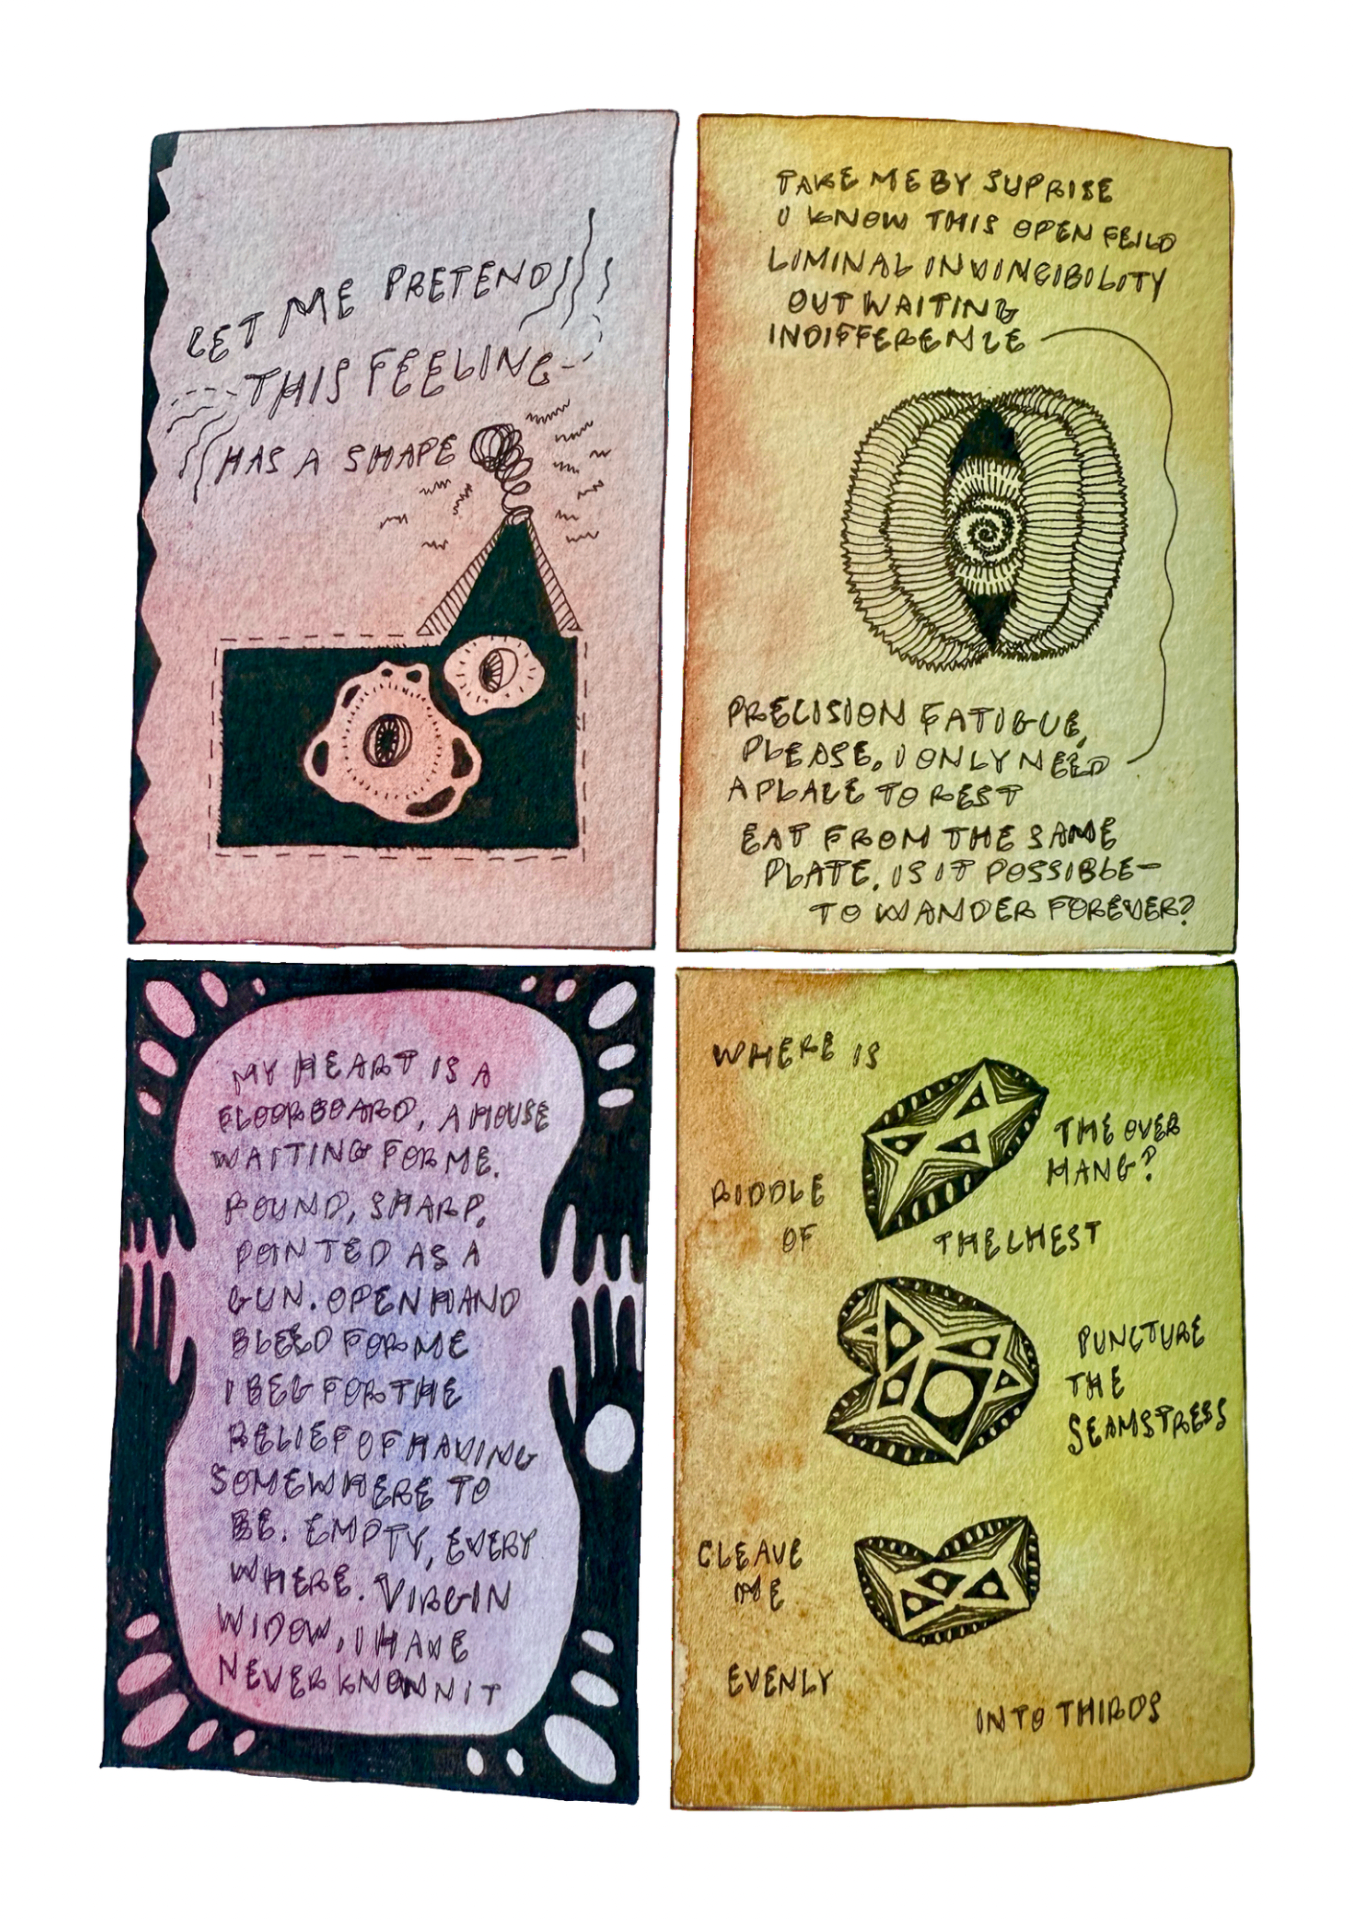 LET ME PRETEND
THIS FEELING
HAS A SHAPE
TAKE ME BY SUPRISE
I KNOW THIS OPEN FEILD
LIMINAL INVINCIBILITY
OUT WAITING
INDIFFERENCE
PRECISION FATIGUE,
PLEASE. I ONLY NEED
A PLACE TO REST
EAT FROM THE SAME
PLATE. IS IT POSSIBLE—
TO WANDER FOREVER?
MY HEART IS A
FLOORBOARD, A HOUSE
WAITING FOR ME.
ROUND, SHARP,
POINTED AS A
GUN. OPEN HAND
BLEED FOR ME
I BEG FOR THE
RELIEF OF HAVING
SOMEWHERE TO
BE. EMPTY, EVERY
WHERE. VIRGIN
WIDOW, I HAVE
NEVER KNOWN IT
WHERE IS
THE OVER
HANG?
RIDDLE
OF
THE CHEST
PUNCTURE
THE
SEAMSTRESS
CLEAVE
ME
EVENLY
INTO THIRDS